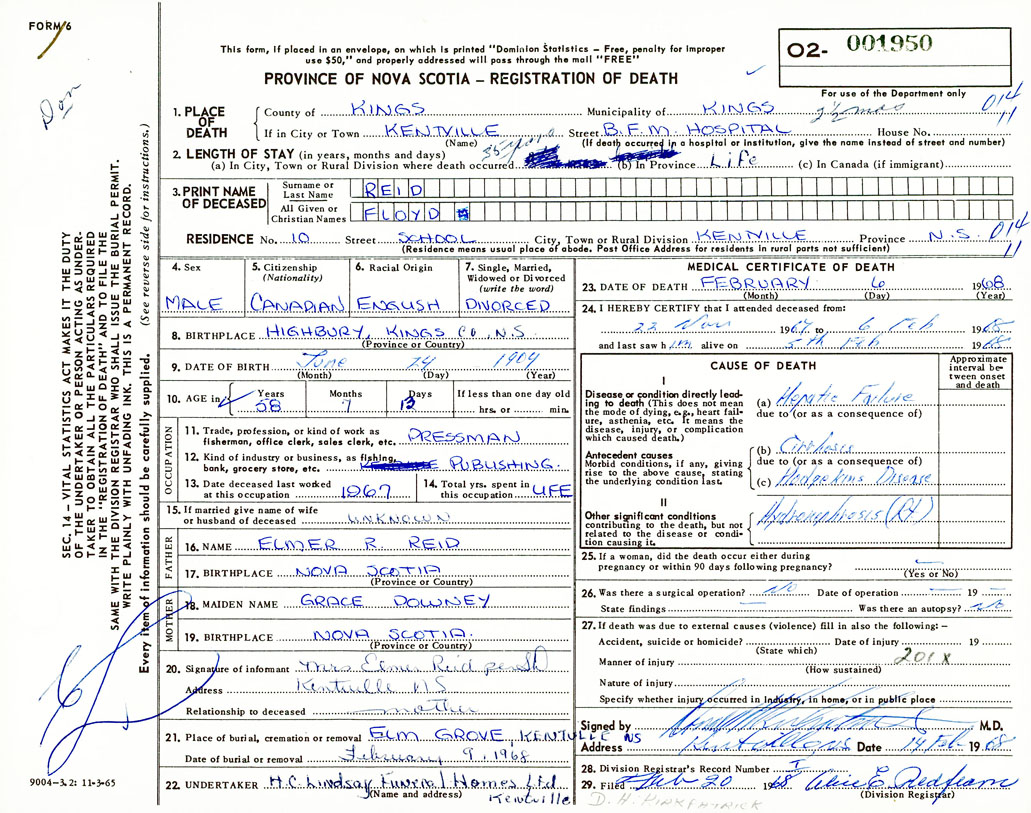 FORM 6
O2- 001950
This form, if placed in an envelope, on which is printed "Dominion Statistics – Free, penalty for improper
use $50," and properly addressed will pass through the mail "FREE"
PROVINCE OF NOVA SCOTIA – REGISTRATION OF DEATH
For use of the Department only
Don
014
11
1. PLACE OF DEATH
County of KINGS Municipality of KINGS 2½ mos
If in City or Town KENTVILLE Street B.F.M. HOSPITAL House No.
(Name) (If death occurred in a hospital or institution, give the name instead of street and number)
2. LENGTH OF STAY (in years, months and days)
(a) In City, Town or Rural Division where death occurred (b) In Province Life (c) In Canada (if immigrant)
3. PRINT NAME OF DECEASED
Surname or Last Name REID
All Given or Christian Names FLOYD
RESIDENCE No. 10 Street SCHOOL City, Town or Rural Division KENVILLE Province N.S. 014
11
(Residence means usual place of abode. Post Office Address for residents in rural parts not sufficient)
4. Sex
MALE
5. Citizenship
(Nationality)
CANADIAN
6. Racial Origin
ENGLISH
7. Single, Married,
Widowed or Divorced
(write the word)
DIVORCED
8. BIRTHPLACE HIGHBURY, KINGS CO, N.S.
(Province or Country)
9. DATE OF BIRTH June 24 1909
(Month) (Day) (Year)
10. AGE in Years 58 Months 7 Days 13 If less than one day old
hrs. or min.
OCCUPATION
11. Trade, profession, or kind of work as
fisherman, office clerk, sales clerk, etc. PRESSMAN
12. Kind of industry or business, as fishing,
bank, grocery store, etc. PUBLISHING.
13. Date deceased last worked
at this occupation 1967
14. Total yrs. spent in
this occupation LIFE
15. If married give name of wife
or husband of deceased UNKNOWN
FATHER
16. NAME ELMER R. REID
17. BIRTHPLACE NOVA SCOTIA
(Province or Country)
MOTHER
18. MAIDEN NAME GRACE DOWNEY
19. BIRTHPLACE NOVA SCOTIA.
(Province or Country)
20. Signature of informant Mrs Elmer Reid
Address Kentville NS
Relationship to deceased mother
21. Place of burial, cremation or removal ELM GROVE, KENTVILLE NS
Date of burial or removal February 9, 1968
22. UNDERTAKER H.C. Lindsay Funeral Homes Ltd
(Name and address) Kentville
MEDICAL CERTIFICATE OF DEATH
23. DATE OF DEATH FEBRUARY 6 1968
(Month) (Day) (Year)
24. I HEREBY CERTIFY that I attended deceased from:
22 Nov 1967, to 6 Feb 1968
and last saw him alive on 5th Feb 1968
CAUSE OF DEATH
Approximate interval between onset and death
I
Disease or condition directly leading to death (This does not mean the mode of dying, e.g., heart failure, asthenia, etc. It means the disease, injury, or complication which caused death.)
(a) Hepatic Failure
due to (or as a consequence of)
Antecedent causes
Morbid conditions, if any, giving rise to the above cause, stating the underlying condition last.
(b) Cirrhosis
due to (or as a consequence of)
(c) Hodgekins Disease
II
Other significant conditions
contributing to the death, but not related to the disease or condition causing it.
Hydronephrosis (Rt)
25. If a woman, did the death occur either during
pregnancy or within 90 days following pregnancy?
(Yes or No)
26. Was there a surgical operation? No Date of operation 19
State findings Was there an autopsy? No
27. If death was due to external causes (violence) fill in also the following: –
Accident, suicide or homicide? Date of injury 19
(State which)
Manner of injury 201 X
(How sustained)
Nature of injury
Specify whether injury occurred in industry, in home, or in public place
Signed by M.D.
Address Date 14 Feb 1968
28. Division Registrar's Record Number
29. Filed Feb 20 1968 Alice E. Redfearn
(Division Registrar)
D. H. KIRKPATRICK
SEC. 14 – VITAL STATISTICS ACT MAKES IT THE DUTY
OF THE UNDERTAKER OR PERSON ACTING AS UNDER-
TAKER TO OBTAIN ALL THE PARTICULARS REQUIRED
IN THE "REGISTRATION OF DEATH" AND TO FILE THE
SAME WITH THE DIVISION REGISTRAR WHO SHALL ISSUE THE BURIAL PERMIT.
WRITE PLAINLY WITH UNFADING INK. THIS IS A PERMANENT RECORD.
Every item of information should be carefully supplied. (See reverse side for instructions.)
9004-3.2: 11-3-65